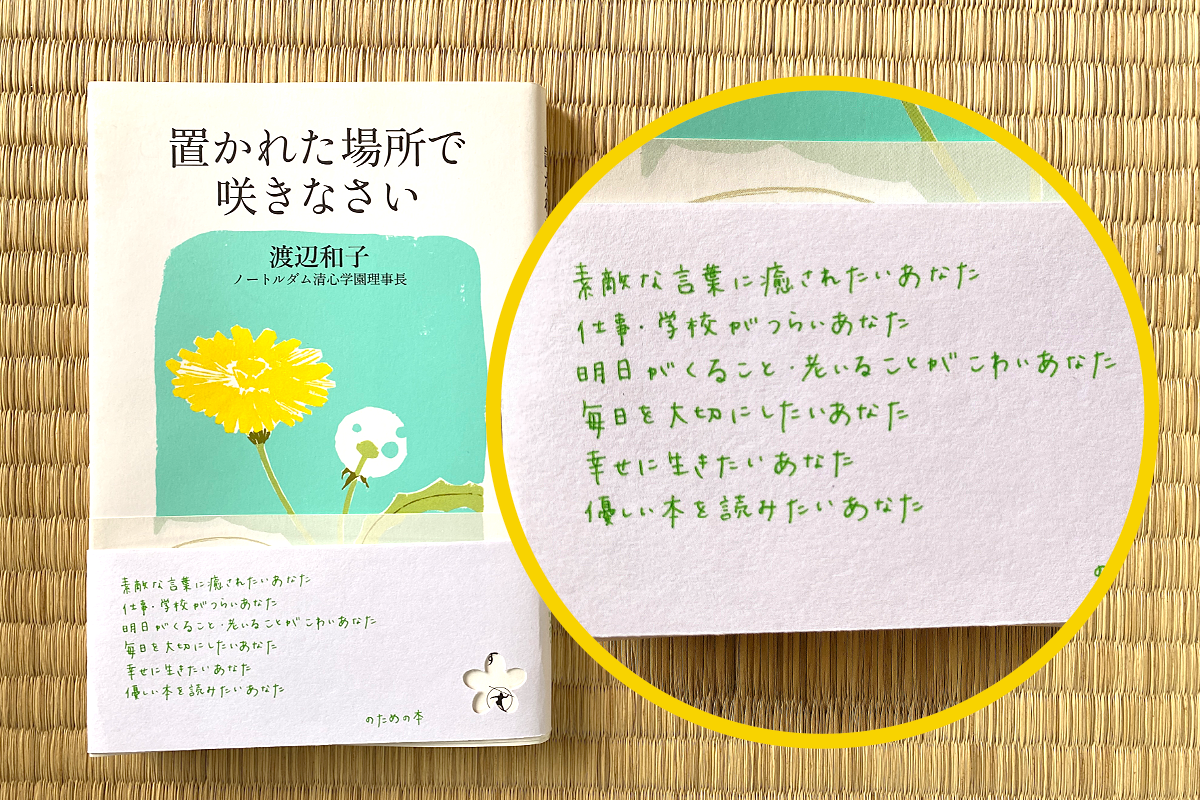 置かれた場所で
咲きなさい
渡辺和子
ノートルダム清心学園理事長
素敵な言葉に癒されたいあなた
仕事・学校がつらいあなた
明日がくること・老いることがこわいあなた
毎日を大切にしたいあなた
幸せに生きたいあなた
優しい本を読みたいあなた
のための本
素敵な言葉に癒されたいあなた
仕事・学校がつらいあなた
明日がくること・老いることがこわいあなた
毎日を大切にしたいあなた
幸せに生きたいあなた
優しい本を読みたいあなた
の